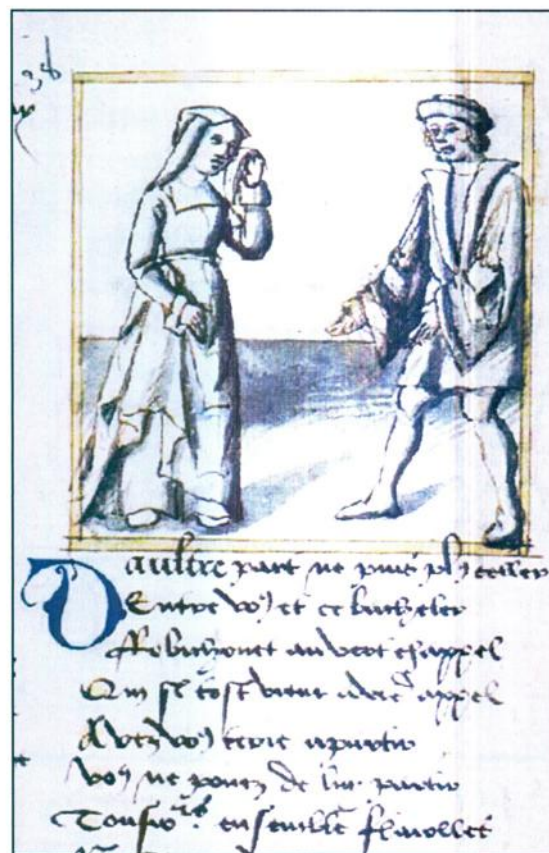 Daultre part ne puis plꝯ celler
Entre voꝯ et ce bacheler
Robichonet au vert chappel
Qui si tost vient a vrẽ appel
Avez voꝯ terre a partir
Voꝯ ne pouez de lui partir
Tousiors ensemble flaiollez